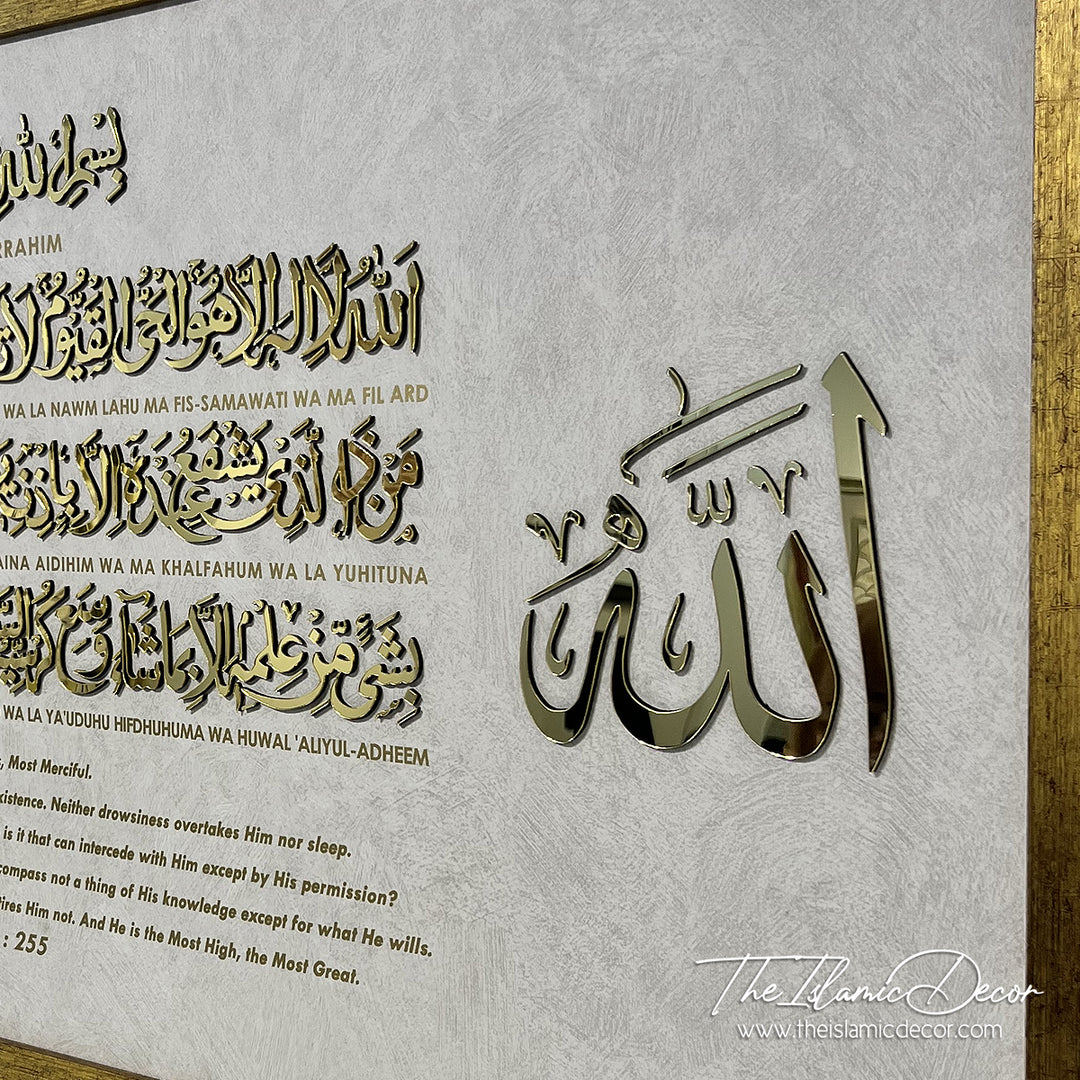 بِسْمِ اللهِ
RRAHIM
اَللهُ لَا اِلٰهَ اِلَّا هُوَ الْحَيُّ الْقَيُّومُ لَا
WA LA NAWM LAHU MA FIS-SAMAWATI WA MA FIL ARD
مَنْ ذَا الَّذِي يَشْفَعُ عِنْدَهُ اِلَّا بِاِذْنِهِ
AINA AIDIHIM WA MA KHALFAHUM WA LA YUHITUNA
بِشَيْءٍ مِّنْ عِلْمِهِ اِلَّا بِمَا شَاءَ وَسِعَ
WA LA YA'UDUHU HIFDHUHUMA WA HUWAL 'ALIYUL-ADHEEM
, Most Merciful.
xistence. Neither drowsiness overtakes Him nor sleep.
is it that can intercede with Him except by His permission?
compass not a thing of His knowledge except for what He wills.
tires Him not. And He is the Most High, the Most Great.
: 255
الله
The Islamic Decor
www.theislamicdecor.com